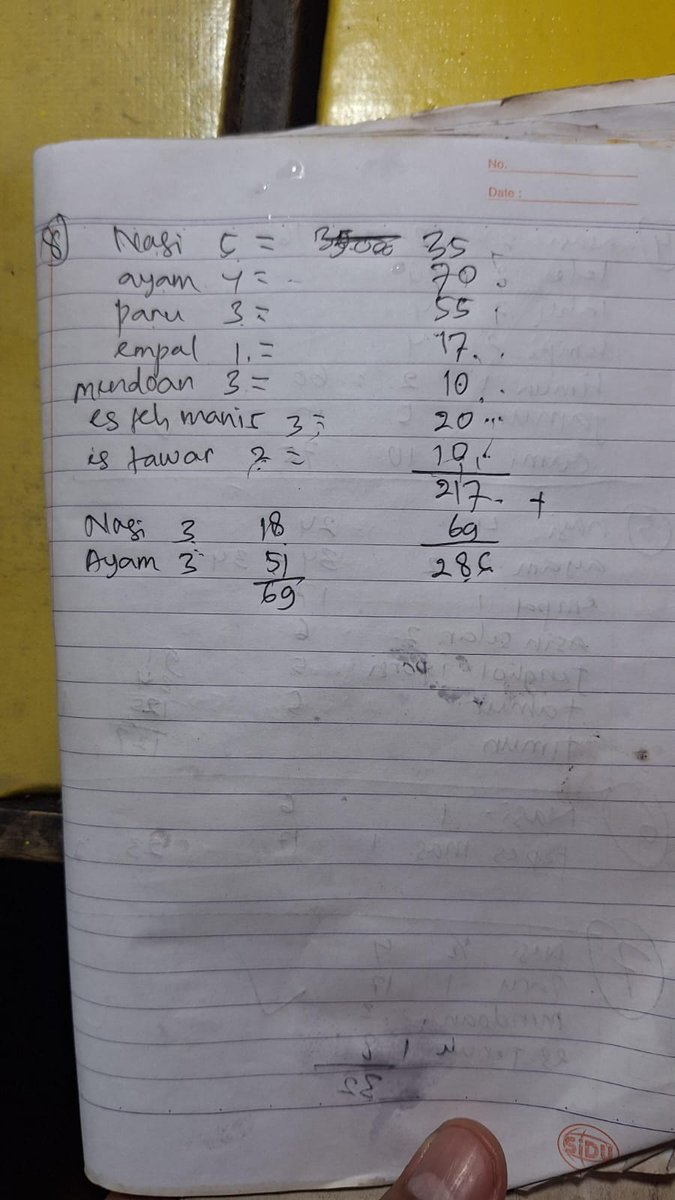 No.
Date :
8 Nasi 5 = 35.000 35
ayam 4 = 70
paru 3 = 55
empal 1 = 17
mendoan 3 = 10
es teh manis 3 = 20
is tawar 2 = 10
217 +
Nasi 3 18 69
Ayam 3 51 286
69
SIDU